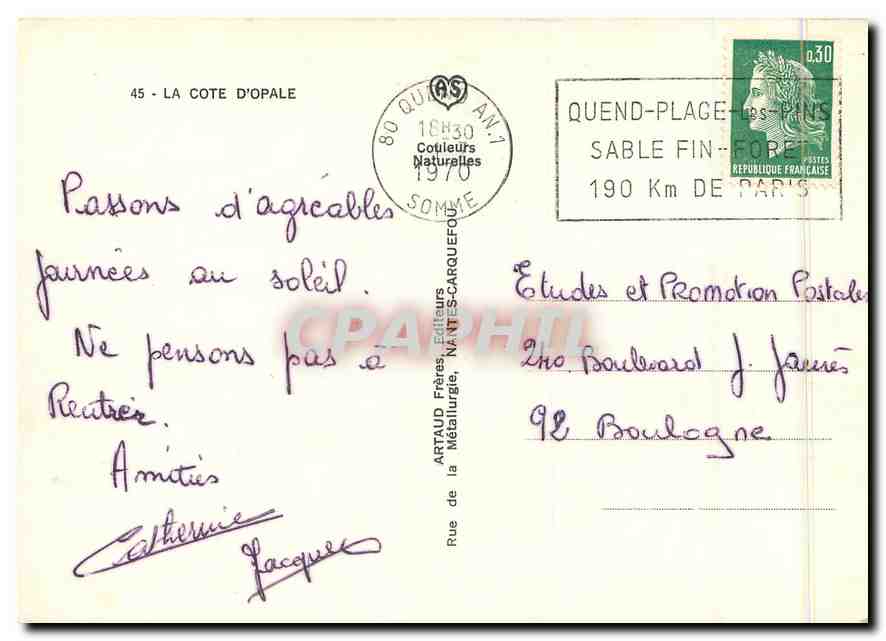 45 - LA COTE D'OPALE
Passons d'agréables
journées au soleil.
Ne pensons pas à
Rentrer.
Amitiés
Catherine
Jacques
AS
Couleurs
Naturelles
ARTAUD Frères, Editeurs
Rue de la Métallurgie, NANTES-CARQUEFOU
80 QUEND AN.1
18H30
1970
SOMME
QUEND-PLAGE-LES-PINS
SABLE FIN-FORET
190 Km DE PARIS
0,30
POSTES
REPUBLIQUE FRANÇAISE
Etudes et Promotion Postales
240 Boulevard J. Jaurès
92 Boulogne
CPAPHIL